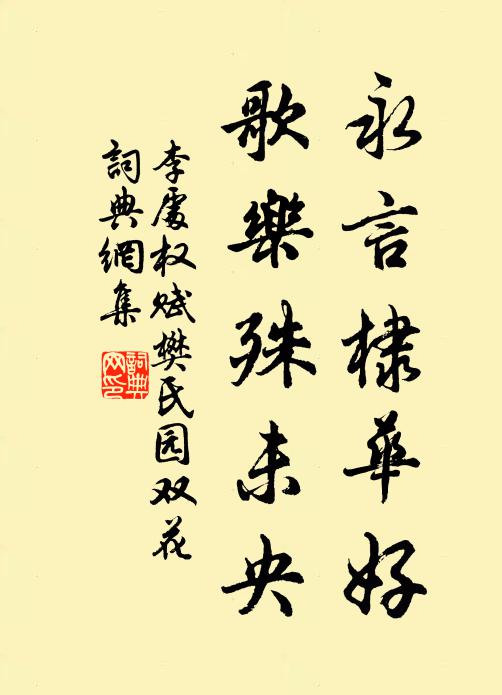 永言棣華好
歌樂殊未央
李處权赋樊氏园双花
詞典網集
詞典
网印